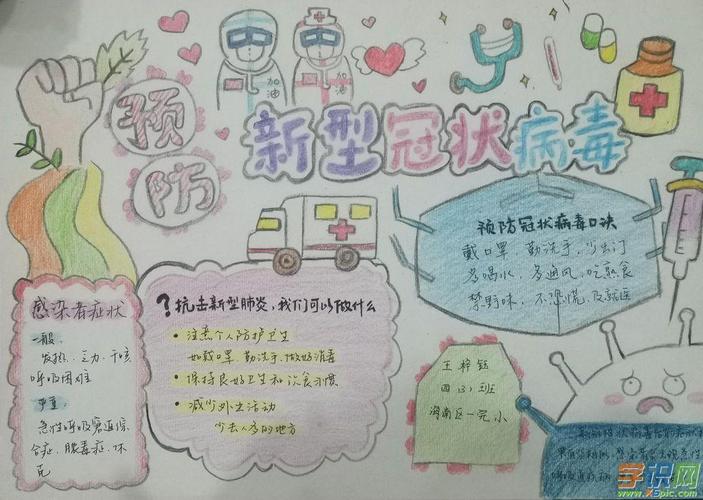 预防
新型冠状病毒
加油
加油
预防冠状病毒口诀
戴口罩 勤洗手,少出门
多喝水,多通风,吃熟食
禁野味,不恐慌,及就医
感染者症状
一般:
发热、乏力、干咳
呼吸困难
严重:
急性呼吸窘迫综
合症、脓毒症、休
克
?抗击新型肺炎,我们可以做什么
• 注意个人防护卫生
如戴口罩 勤洗手,做好消毒
• 保持良好卫生和饮食习惯
• 减少外出活动
少去人多的地方
王梓钰
四(3)班
海南区一完小
学识网
www.xspic.com